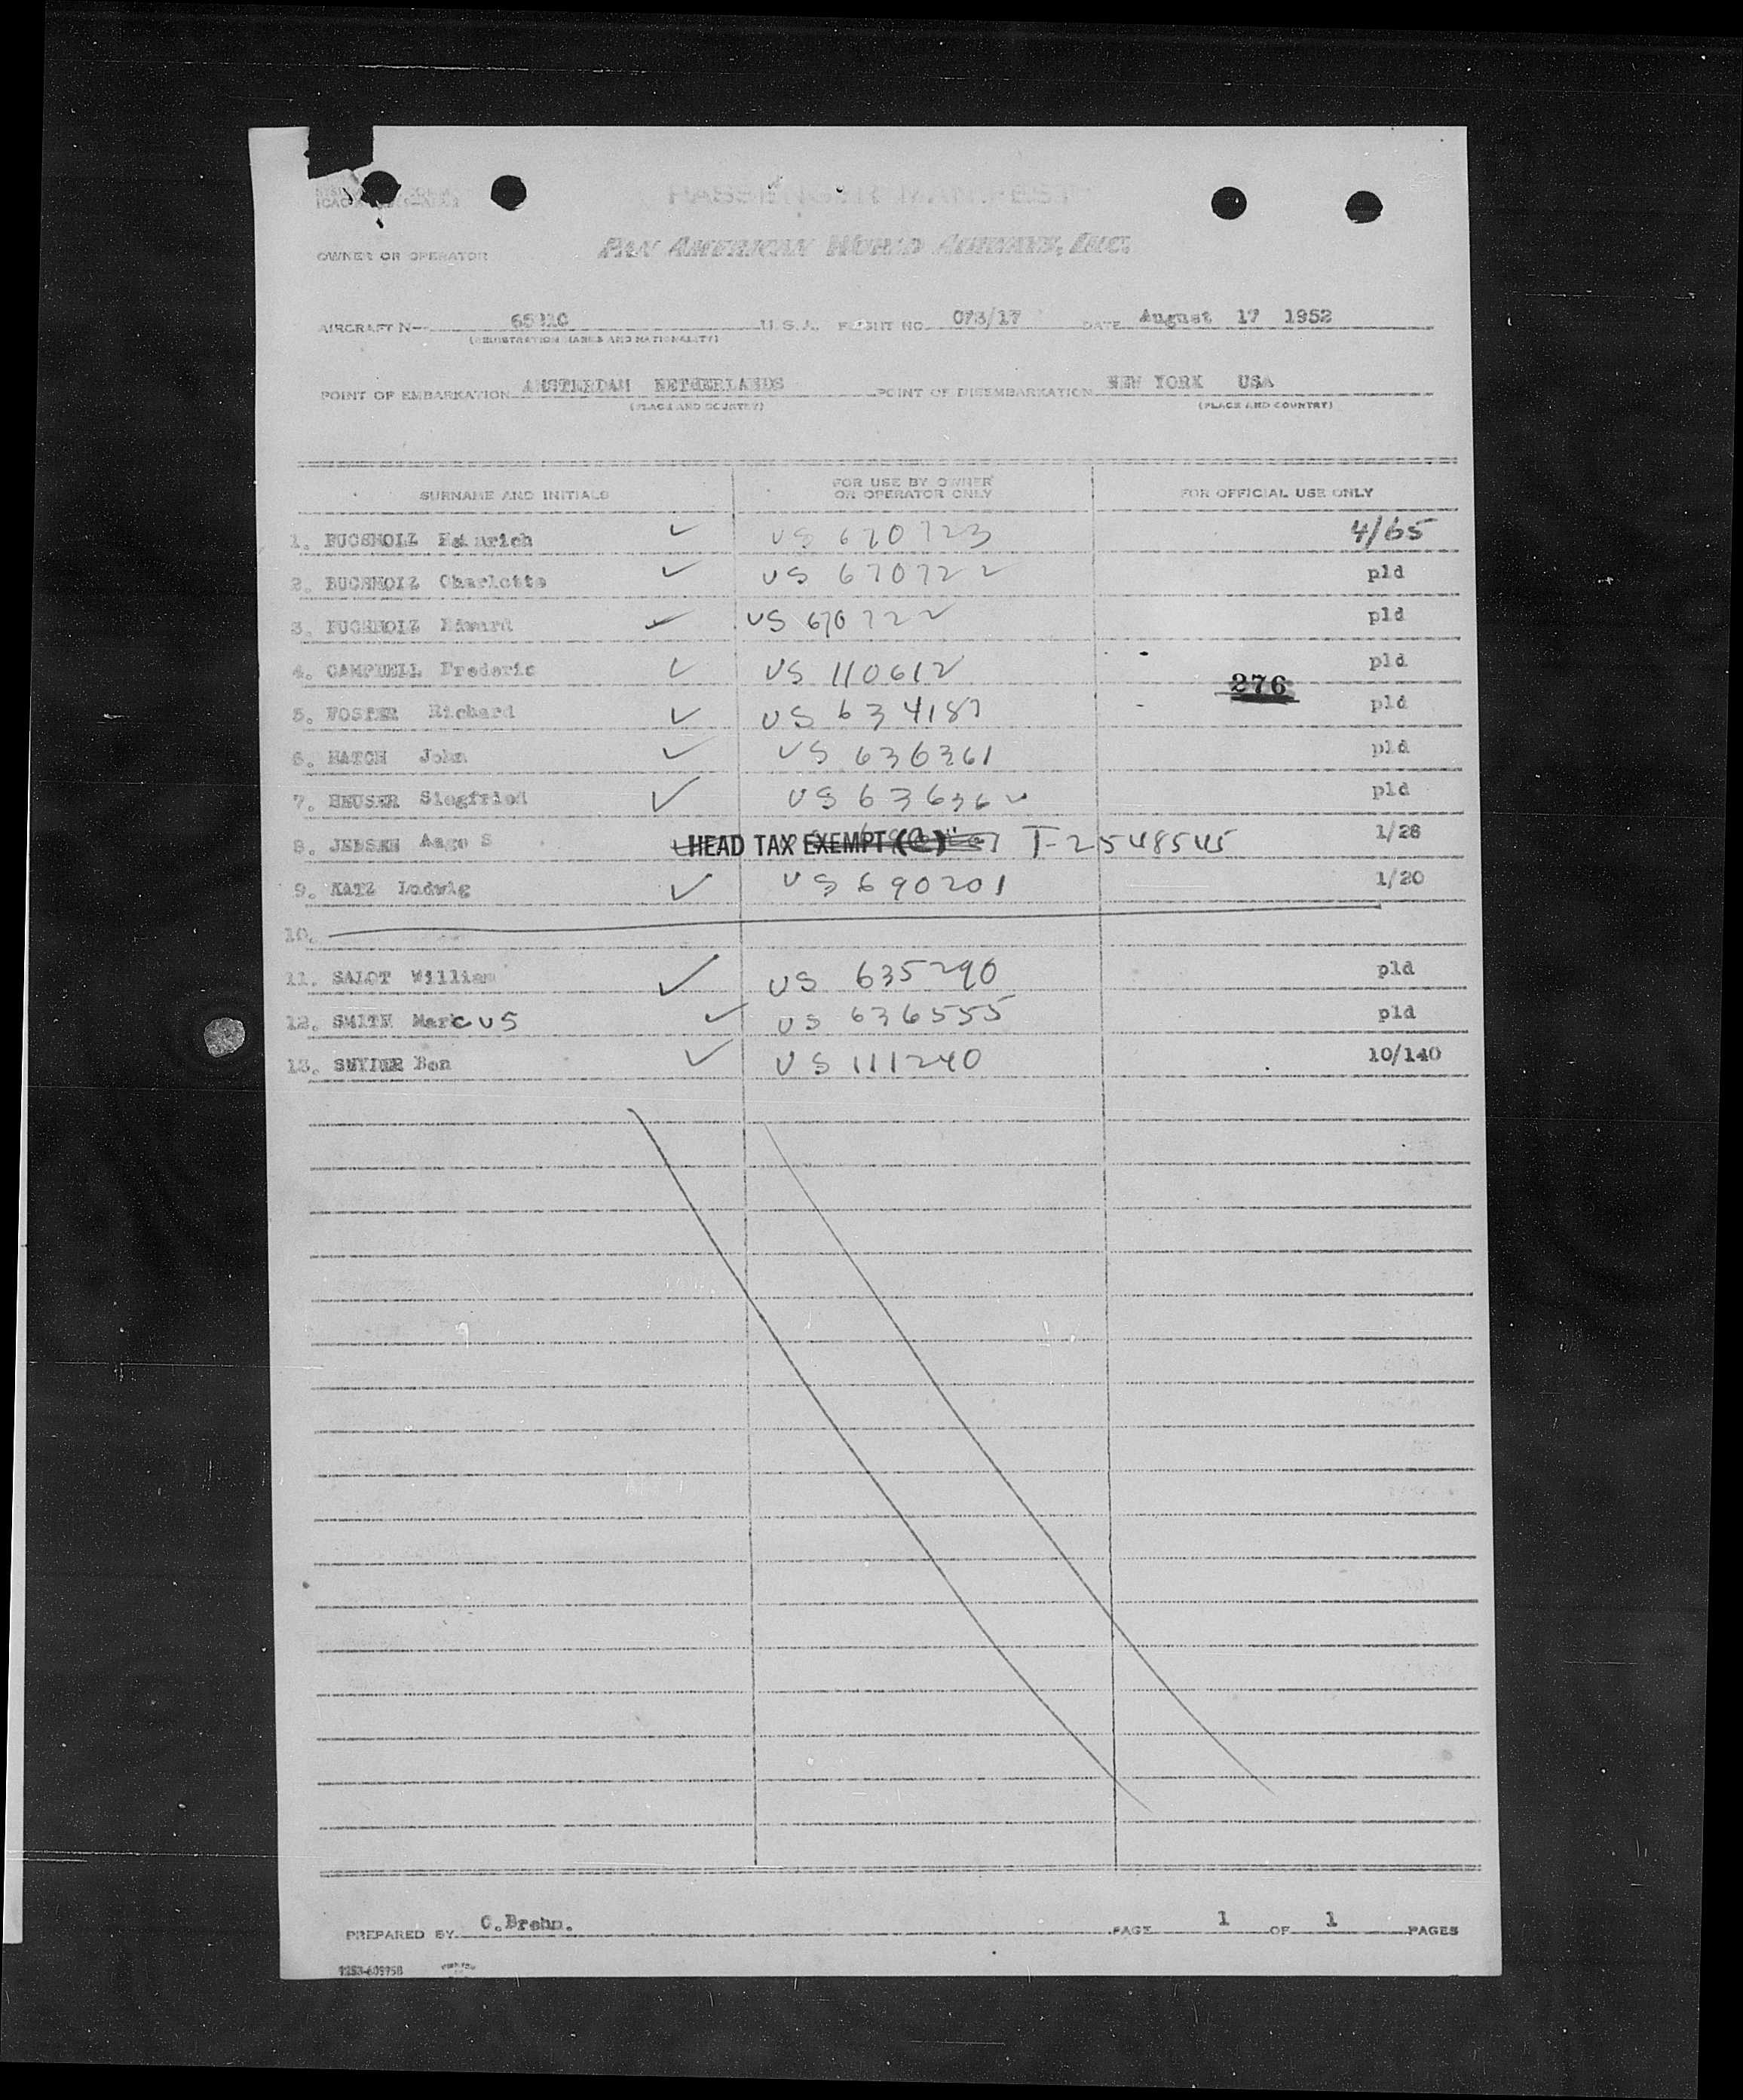 PASSENGER MANIFEST
OWNER OR OPERATOR PAN AMERICAN WORLD AIRWAYS, INC.
AIRCRAFT N— U.S.A. FLIGHT NO. 073/17 DATE August 17 1952
(REGISTRATION MARKS AND NATIONALITY)
POINT OF EMBARKATION AMSTERDAM NETHERLANDS POINT OF DISEMBARKATION NEW YORK USA
(PLACE AND COUNTRY) (PLACE AND COUNTRY)
SURNAME AND INITIALS FOR USE BY OWNER OR OPERATOR ONLY FOR OFFICIAL USE ONLY
1. BUCHHOLZ Heinrich ✓ US 670723 4/65
2. BUCHHOLZ Charlotte ✓ US 670722 pld
3. BUCHHOLZ Edward ✓ US 670722 pld
4. CAMPBELL Frederic ✓ US 110612 pld
276
5. FOSTER Richard ✓ US 634187 pld
6. HATCH John ✓ US 636361 pld
7. HEUSER Siegfried ✓ US 636362 pld
8. JENSEN Aage S HEAD TAX EXEMPT (C) T-2548545 1/28
9. KATZ Ludwig ✓ US 690201 1/20
10.
11. SALOT William ✓ US 635290 pld
12. SMITH Marcus ✓ US 636555 pld
13. SNYDER Ben ✓ US 111240 10/140
PREPARED BY C.Brehm. PAGE 1 OF 1 PAGES